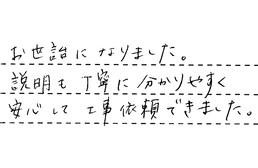 お世詒になりました。
説明も丁寧に分かりやすく
安心して工事依頼できました。